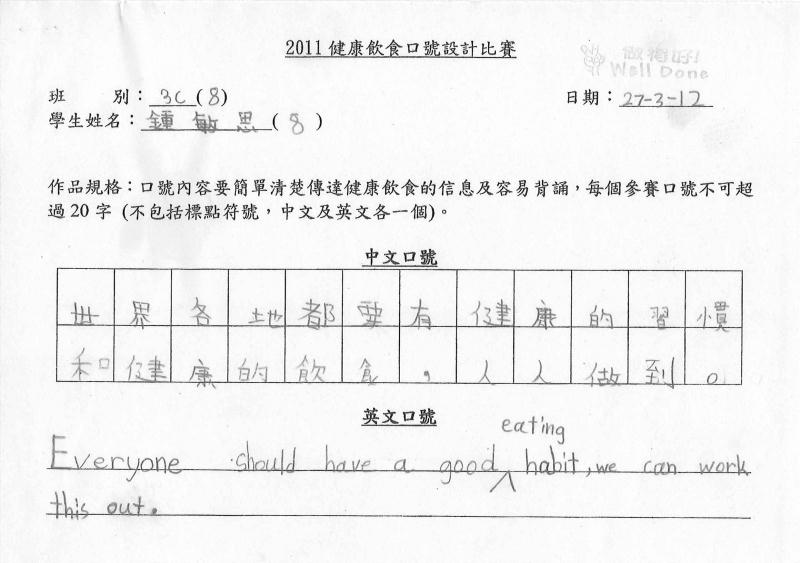 2011 健康飲食口號設計比賽
做得好!
Well Done
班 別：3C(8)
日期：27-3-12
學生姓名：鍾敏思(8)
作品規格：口號內容要簡單清楚傳達健康飲食的信息及容易背誦，每個參賽口號不可超
過20字 (不包括標點符號，中文及英文各一個)。
中文口號
世界各地都要有健康的習慣
和健康的飲食，人人做到。
英文口號
Everyone should have a good eating habit, we can work
this out.